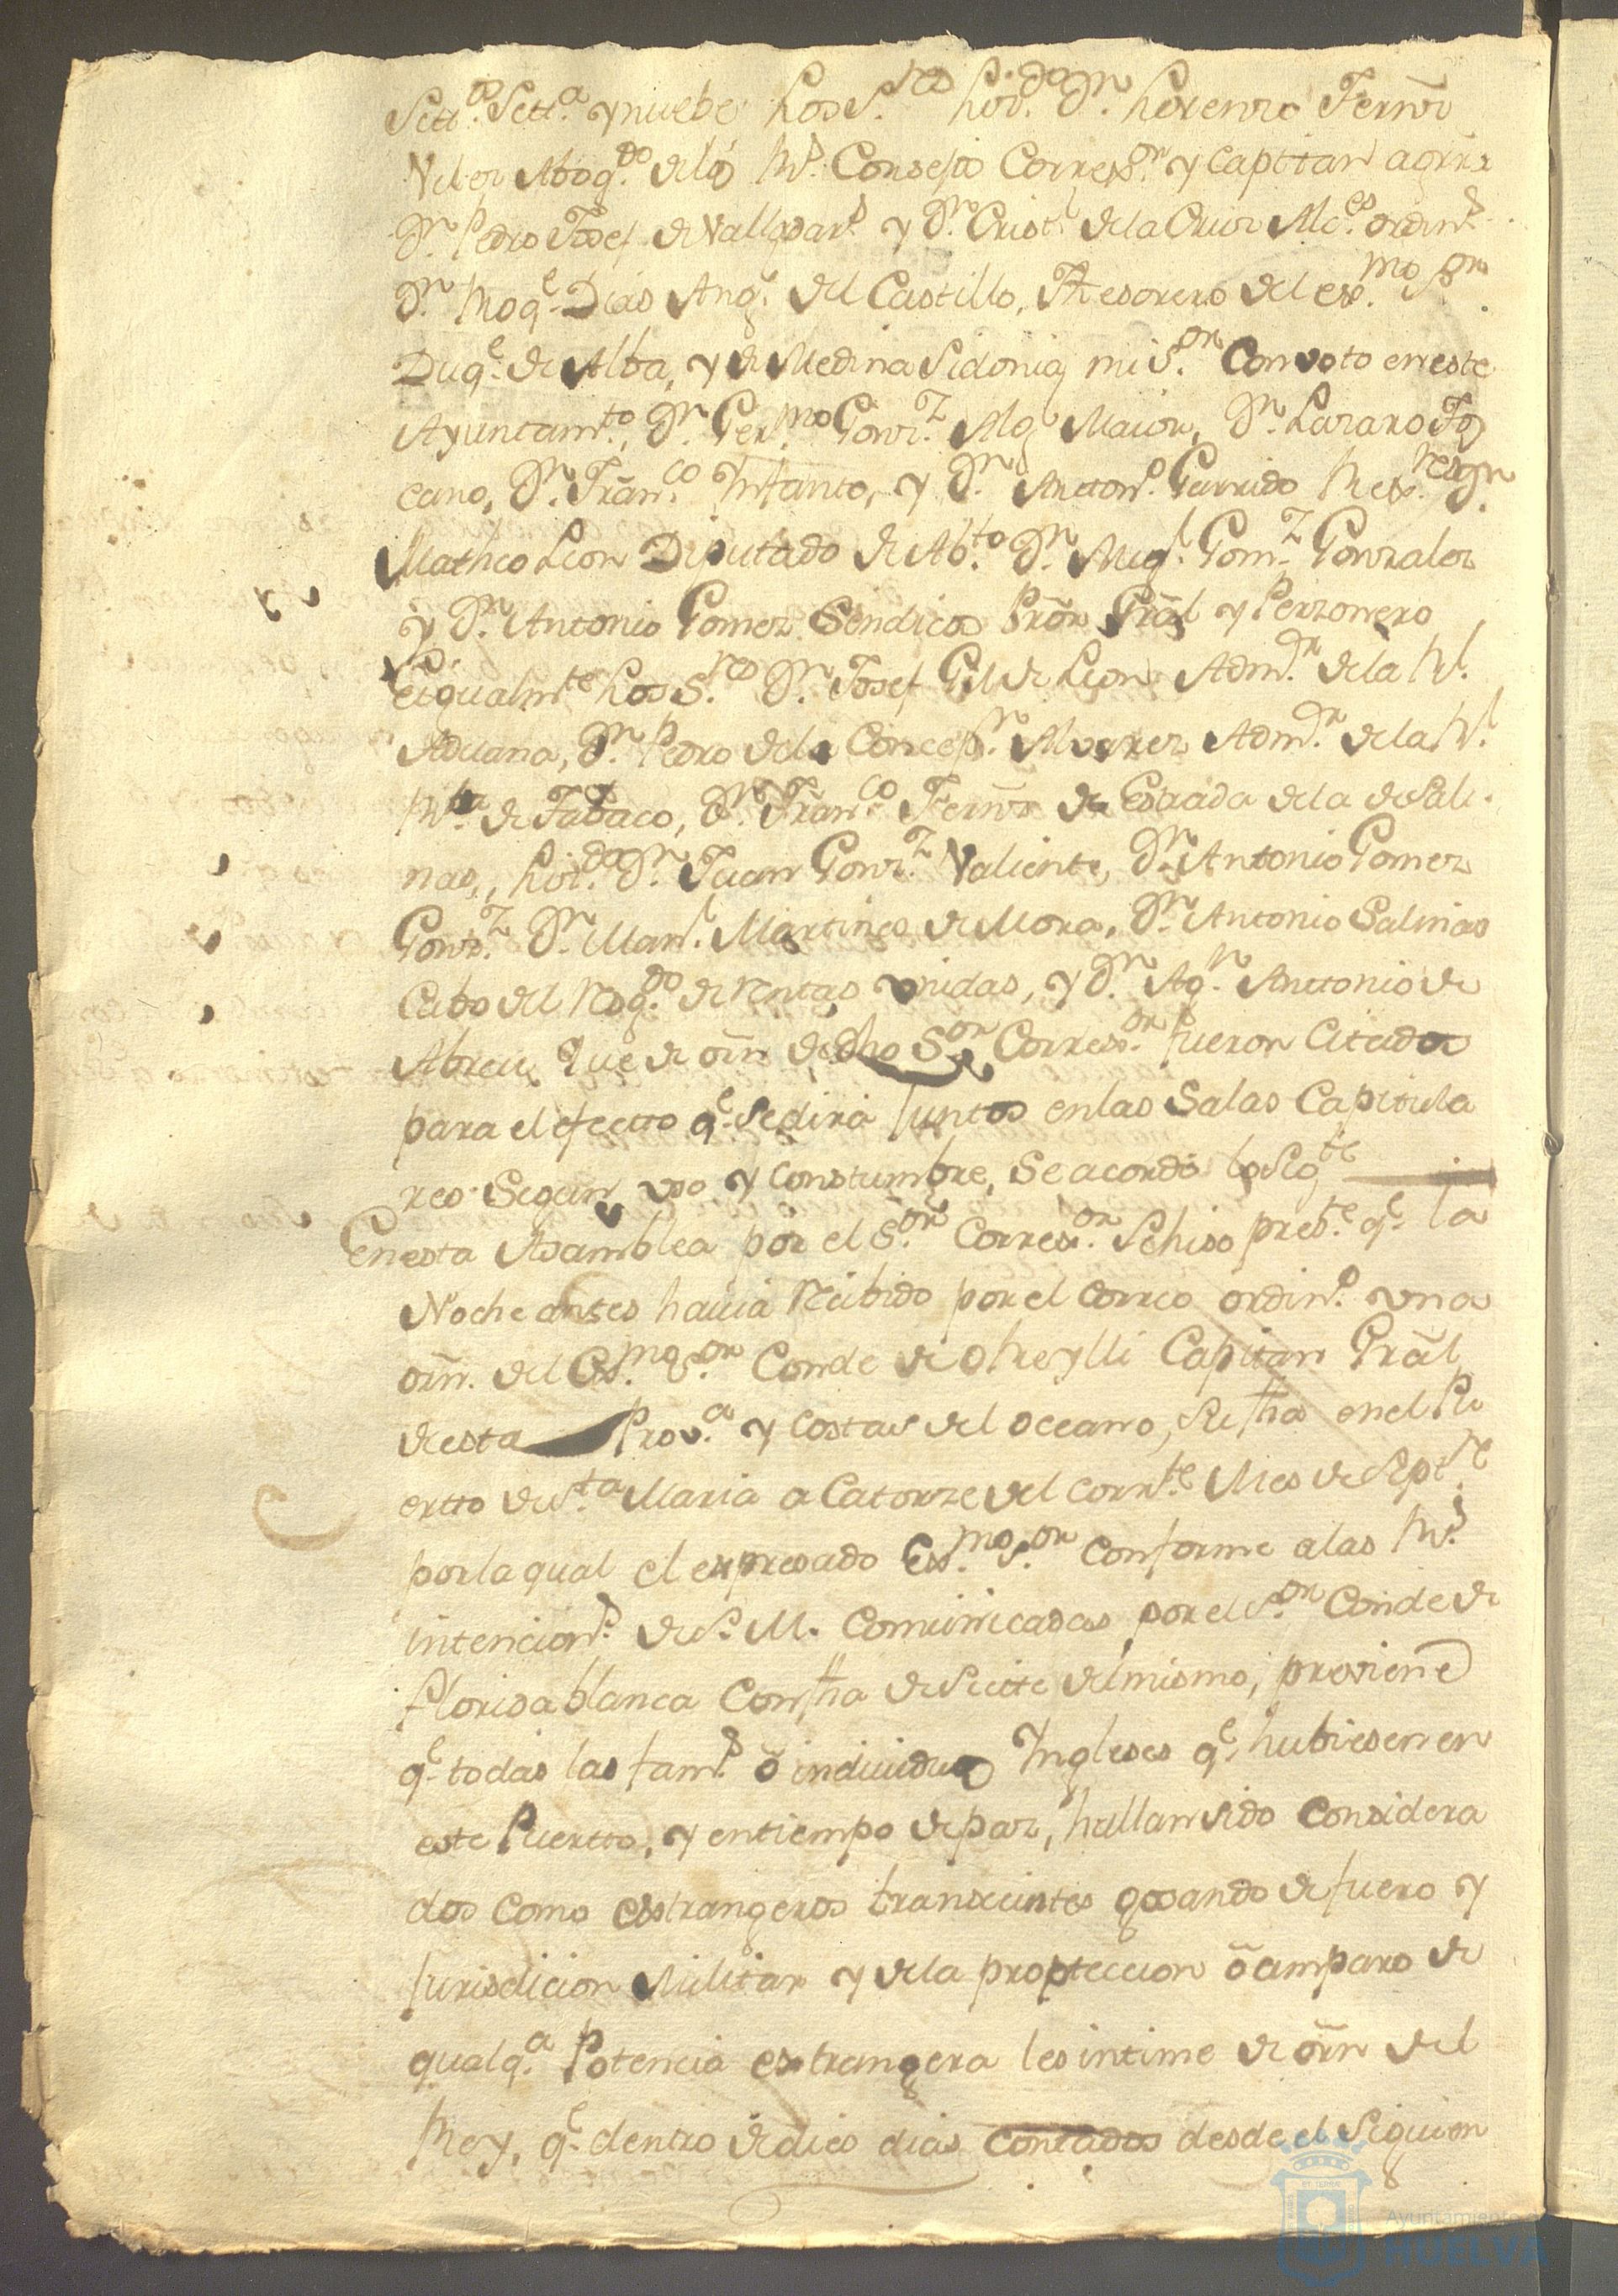 Setts. Setta. y nuebe Los Sres. Lizdo. Dn. Lorenzo Fernz
Velez Abogdo. de los Rs. Consejos Correxor. y Capitan a grra
Dn. Pedro Josef de Vallpdars. y Dn. Cristl. de la Cruz Alces. ordins.
Dn. Roqe. Dias Angl. del Castillo, Thesorero del exmo. Sor.
Duqe. de Alba, y de Medina Sidonia mi Sor. Con voto en este
Ayuntamto., Dn. Germo. Gonzz. Alg Maior, Dn. Lazaro Tos
cano, Dn. Franco. Infante, y Dn. Antono. Garrido Rexres. Dn.
Matheo Leon Diputado de Abto. Dn. Migl. Gomz. Gonzalez
y Dn. Antonio Gomez Sindicos Pror. Gral y Perzonero
E igualmte. Los Sres. Dn. Josef Gil de Leon Admdr. de la Rl.
Aduana, Dn. Pedro de la Concepn. Alvarez Admdr. de la Rl.
Rta. de Tabaco, Dn. Franco. Fernz de Estrada de la de Sali.
nas, Lizdo. Dn. Juan Gonzz. Valiente, Dn. Antonio Gomez
Gonzz. Dn. Manl. Martines de Mora, Dn. Antonio Salinas
Cabo del Resgdo. de Rentas vnidas, y Dn. Agn. Anttonio de
Abreu, que de orn de dho Sor Correxor. fueron Citados
para el efecto qe. se dira Juntos en las Salas Capitula
res Segun vso y Constumbre, Se acordo lo sigte
En esta Asamblea por el Sor. Correxor. se hiso preste. qe. la
Noche antes havia Recibido por el correo ordino. vna
orn. del Exmo. Sor. Conde de Oreylli Capitan Gral
de esta Prova. y costas del oceano, su fha en el Pu
ertto de Sta. Maria a Catorze del corrte. Mes de Septre.
por la qual el expresado Exmo. Sor. conforme a las Rs.
intencions. de S. M. comunicadas por el Sor. Conde de
Floridablanca Con fha de Siete del mismo, previene
qe. todas las fams. o individuos Ingleses qe. hubiesen en
este Puertto, y en tiempo de paz, hallan sido considera
dos como estrangeros transeuntes gosando de fuero y
Jurisdicion Militar y de la proteccion o amparo de
qualqa. Potencia extrangera les intime de orn del
Rey, qe. dentro de dies dias contados desde el siguien
Ayuntamiento de
HUELVA